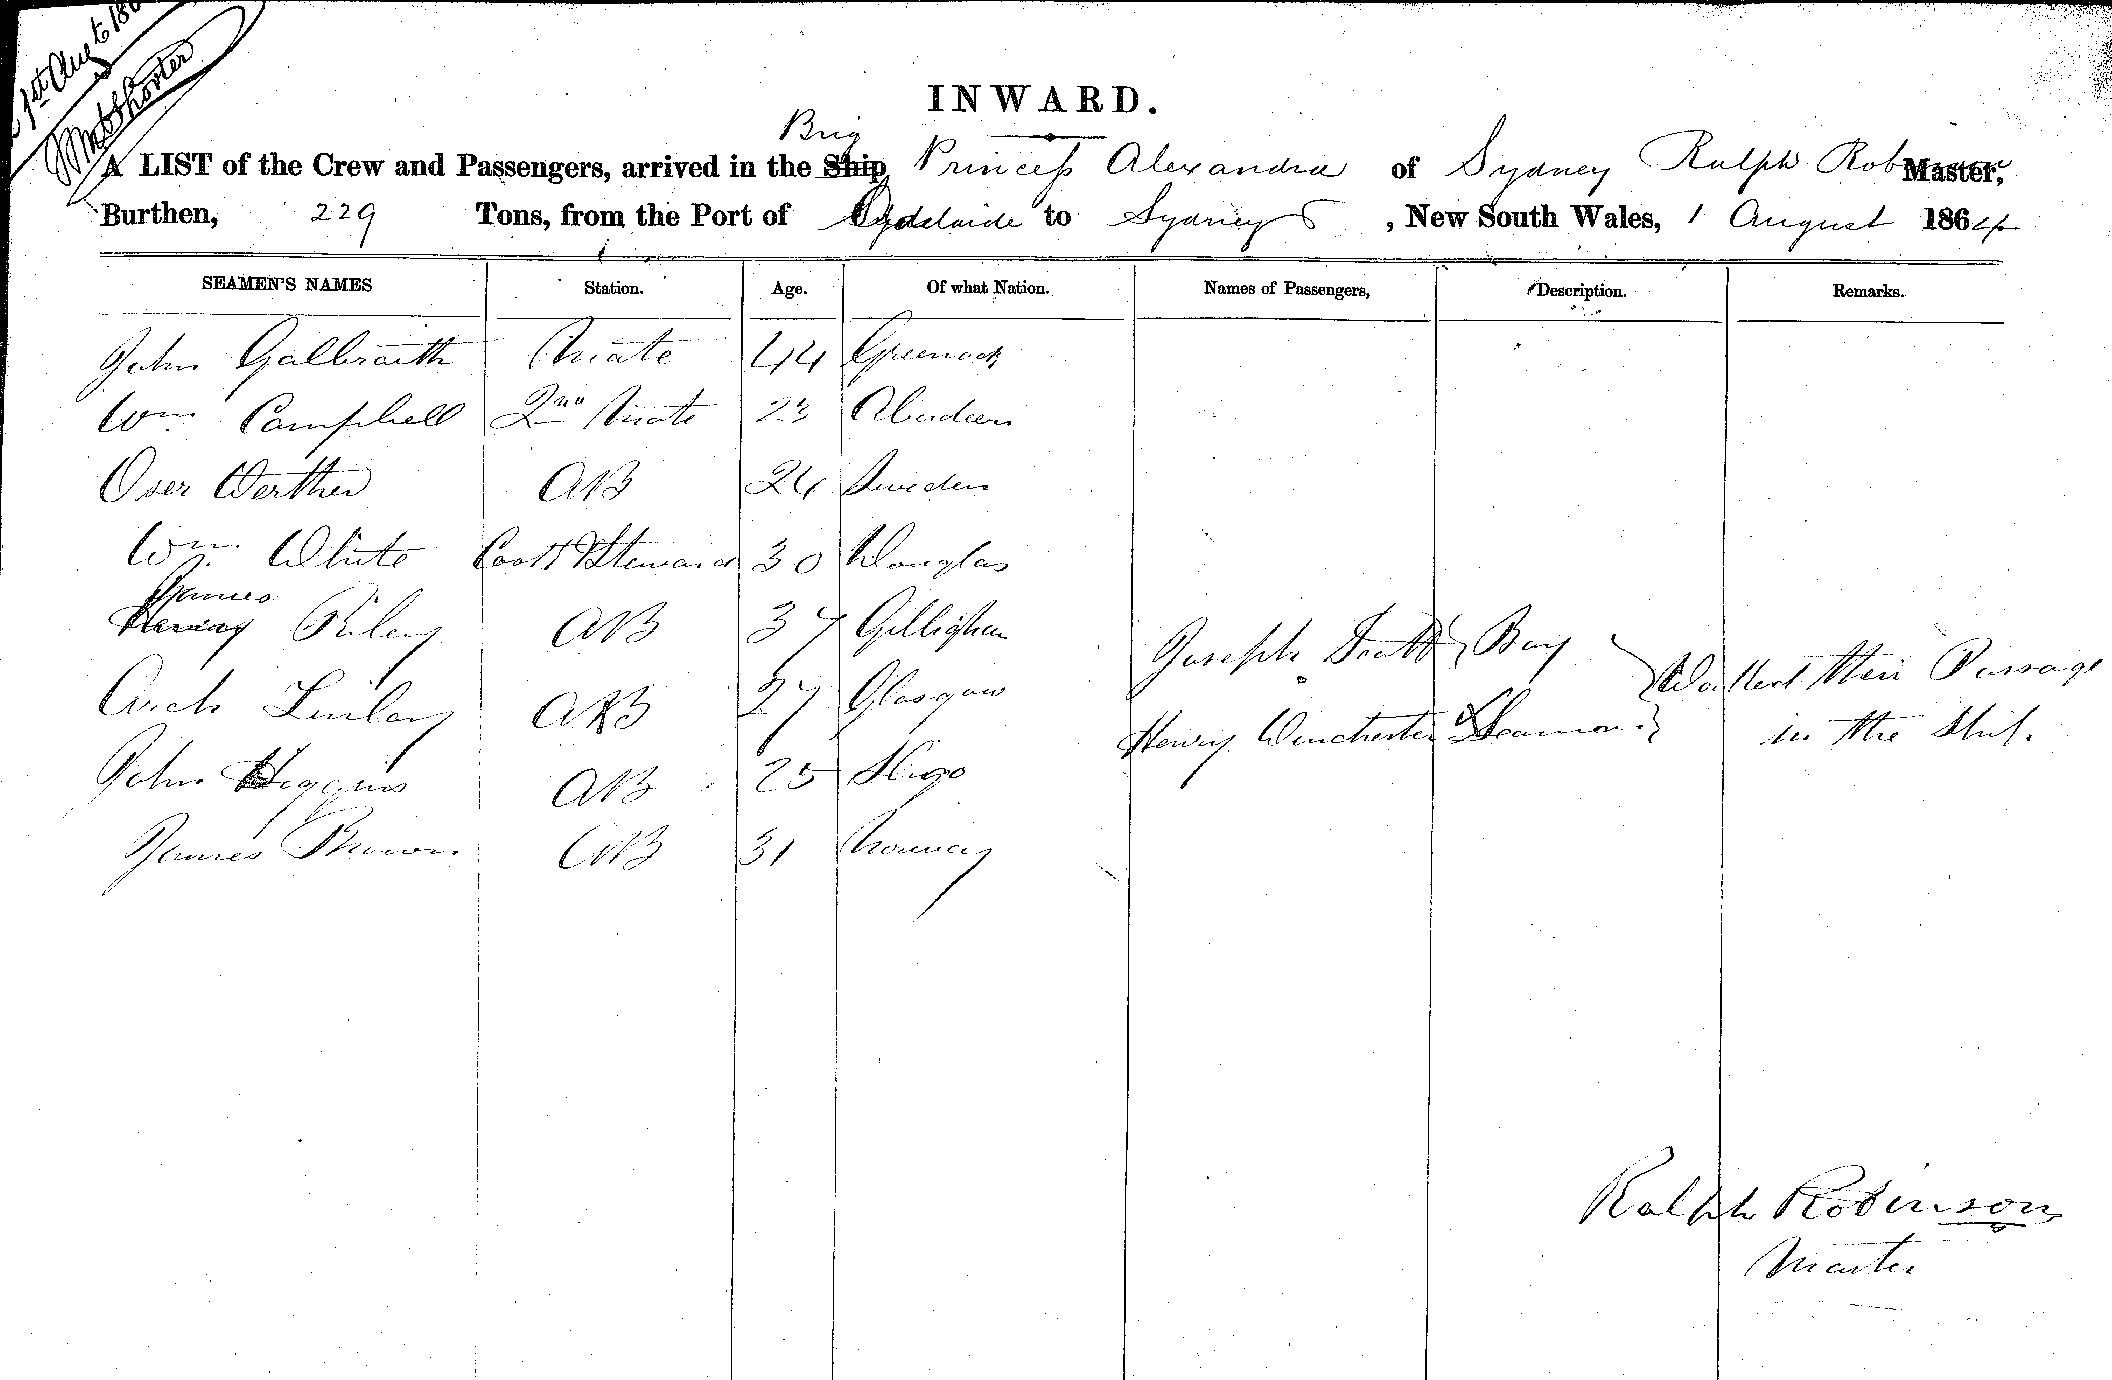 1st Augt 186
Wm Shorter
INWARD.
Brig
A LIST of the Crew and Passengers, arrived in the Ship Princess Alexandra of Sydney Ralph Robinson Master,
Burthen, 229 Tons, from the Port of Adelaide to Sydney, New South Wales, 1 August 1864
SEAMEN'S NAMES Station. Age. Of what Nation. Names of Passengers, Description. Remarks.
John Galbraith Mate 44 Greenock
Wm Campbell 2nd Mate 23 Aberdeen
Oser Werther AB 24 Sweden
Wm White Cook & Steward 30 Douglas
James
Riley AB 37 Gillighan
Joseph Boy
Arch Finlay AB 27 Glasgow
Workect their Passage
Henry Winchester Seaman in the Ship.
John Higgins AB 25 Sligo
James Brown AB 31 Norway
Ralph Robinson
Master